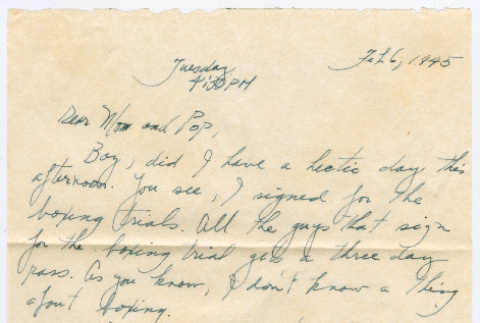 Feb 6, 1945
Tuesday
4:30 PM
Dear Mom and Pop,
Boy, did I have a hectic day this
afternoon. You see, I signed for the
boxing trials. All the guys that sign
for the boxing trial gets a three day
pass. As you know, I don't know a thing
about boxing.